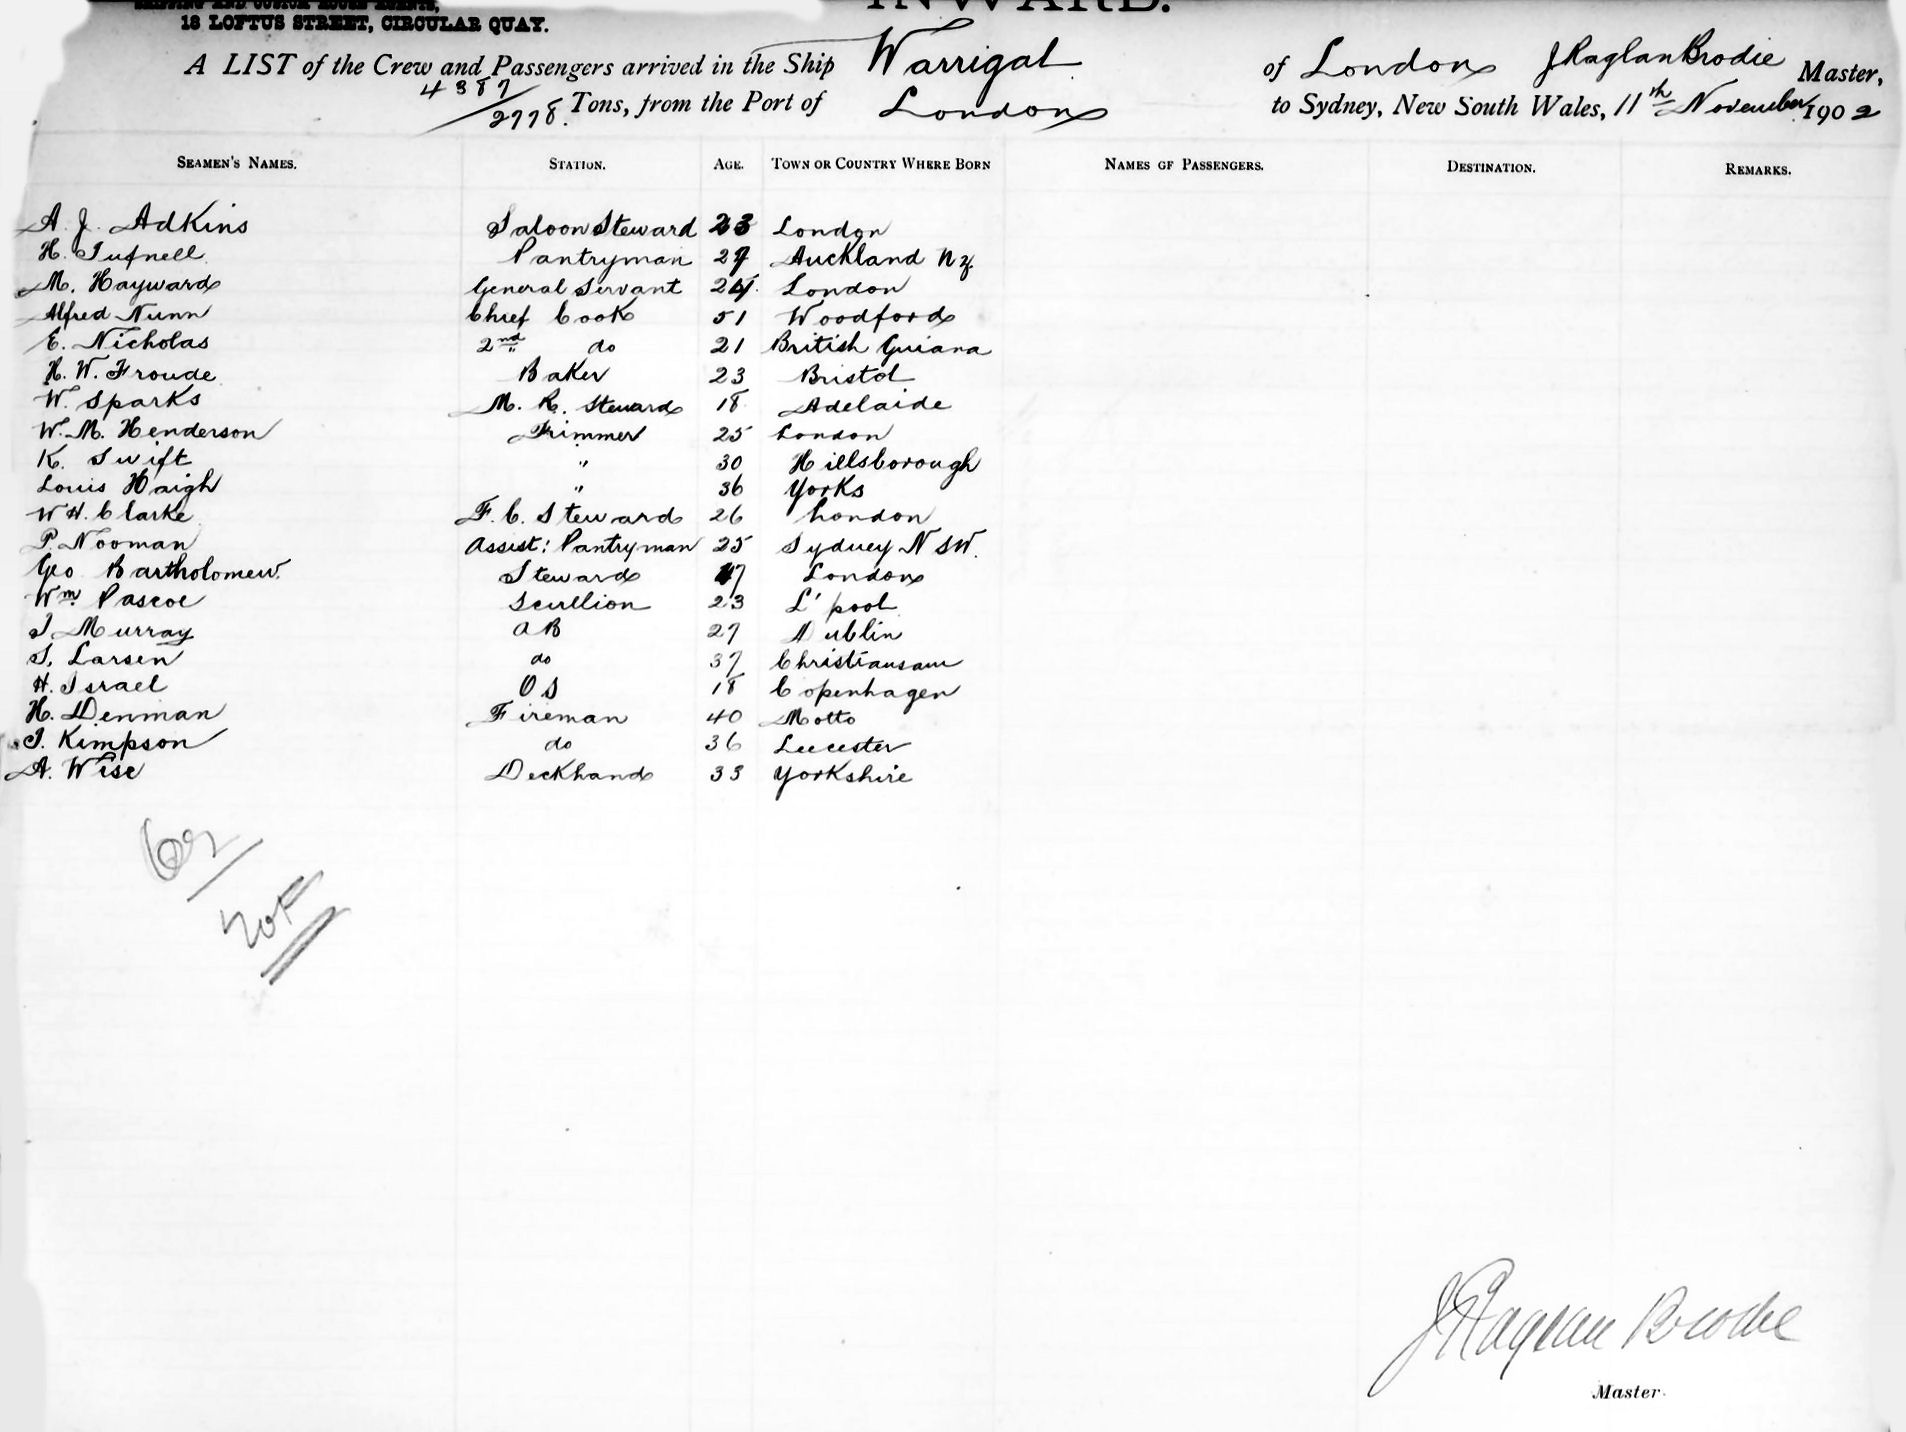 SHIPPING AND CUSTOM HOUSE AGENTS,
18 LOFTUS STREET, CIRCULAR QUAY.
INWARD.
A LIST of the Crew and Passengers arrived in the Ship Warrigal of London J Raglan Brodie Master,
4387/2778. Tons, from the Port of London to Sydney, New South Wales, 11th November 1902
SEAMEN'S NAMES. STATION. AGE. TOWN OR COUNTRY WHERE BORN NAMES OF PASSENGERS. DESTINATION. REMARKS.
A. J. Adkins Saloon Steward 23 London
H. Tufnell Pantryman 27 Auckland N Z.
M. Hayward General Servant 24 London
Alfred Nunn Chief Cook 51 Woodford
E. Nicholas 2nd do 21 British Guiana
H. W. Froude Baker 23 Bristol
W. Sparks M. R. Steward 18 Adelaide
W. M. Henderson Trimmer 25 London
K. Swift " 30 Hillsborough
Louis Haigh " 36 Yorks
W H. Clarke F. C. Steward 26 London
P. Nooman Assist: Pantryman 25 Sydney N S W.
Geo Bartholomew. Steward 17 London
Wm Pascoe Scullion 23 L'pool
J Murray A B 27 Dublin
S. Larsen do 37 Christiansam
H. Israel O S 18 Copenhagen
H. Denman Fireman 40 Motto
J. Kimpson do 36 Leicester
A. Wise Deckhand 33 Yorkshire
J Raglan Brodie
Master